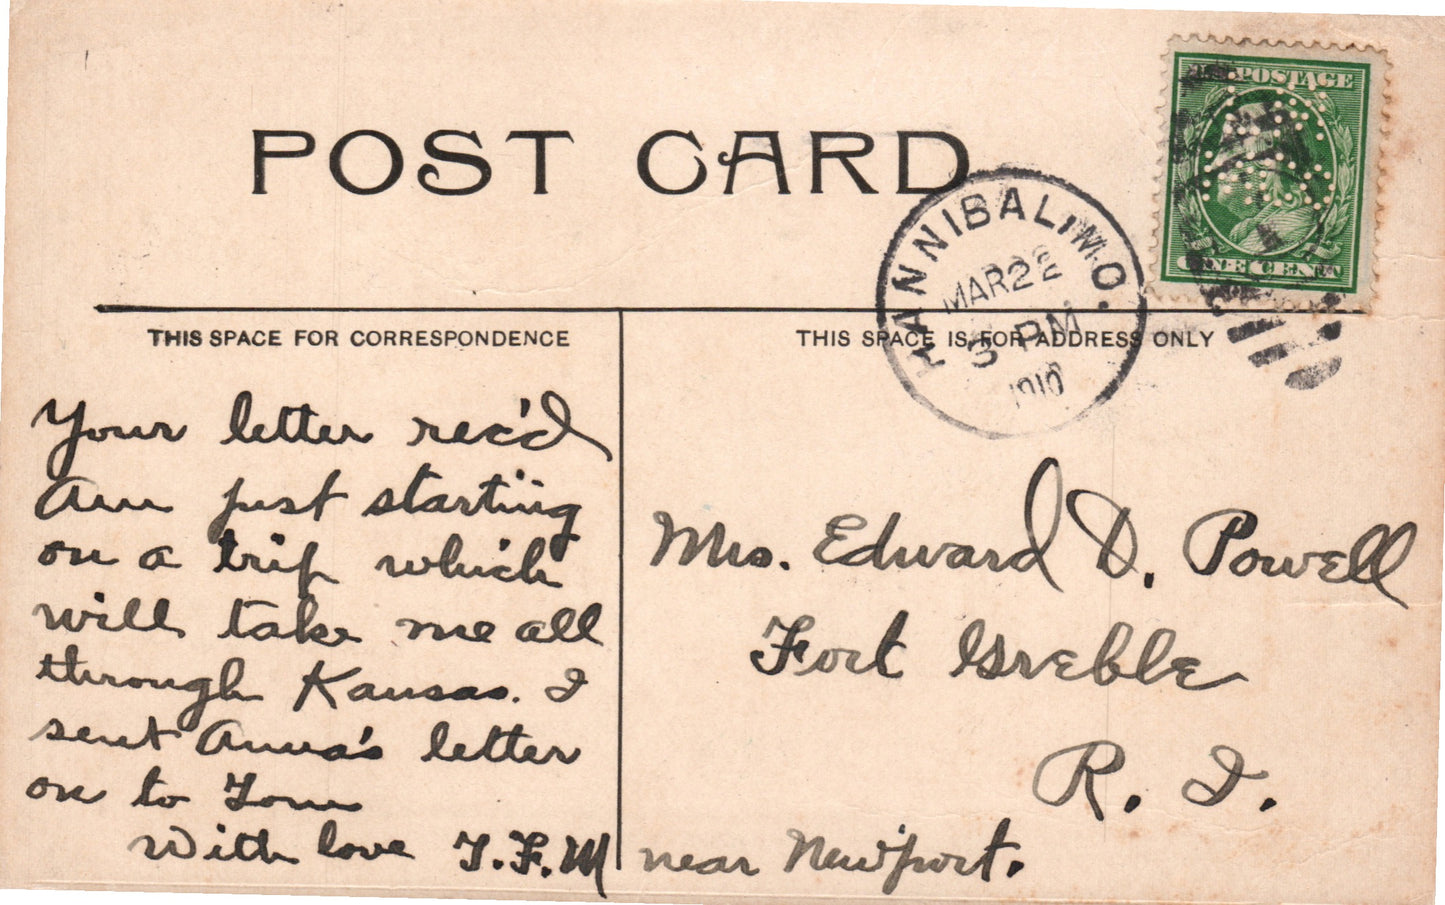 POST CARD
POSTAGE
ONE CENT
HANNIBAL, MO.
MAR 26
3 PM
1910
THIS SPACE FOR CORRESPONDENCE
THIS SPACE IS FOR ADDRESS ONLY
Your letter rec'd
Am just starting
on a trip which
will take me all
through Kansas. I
sent Anna's letter
on to Tom
With love T.F.M
Mrs. Edward D. Powell
Fort Greble
R. I.
near Newport.